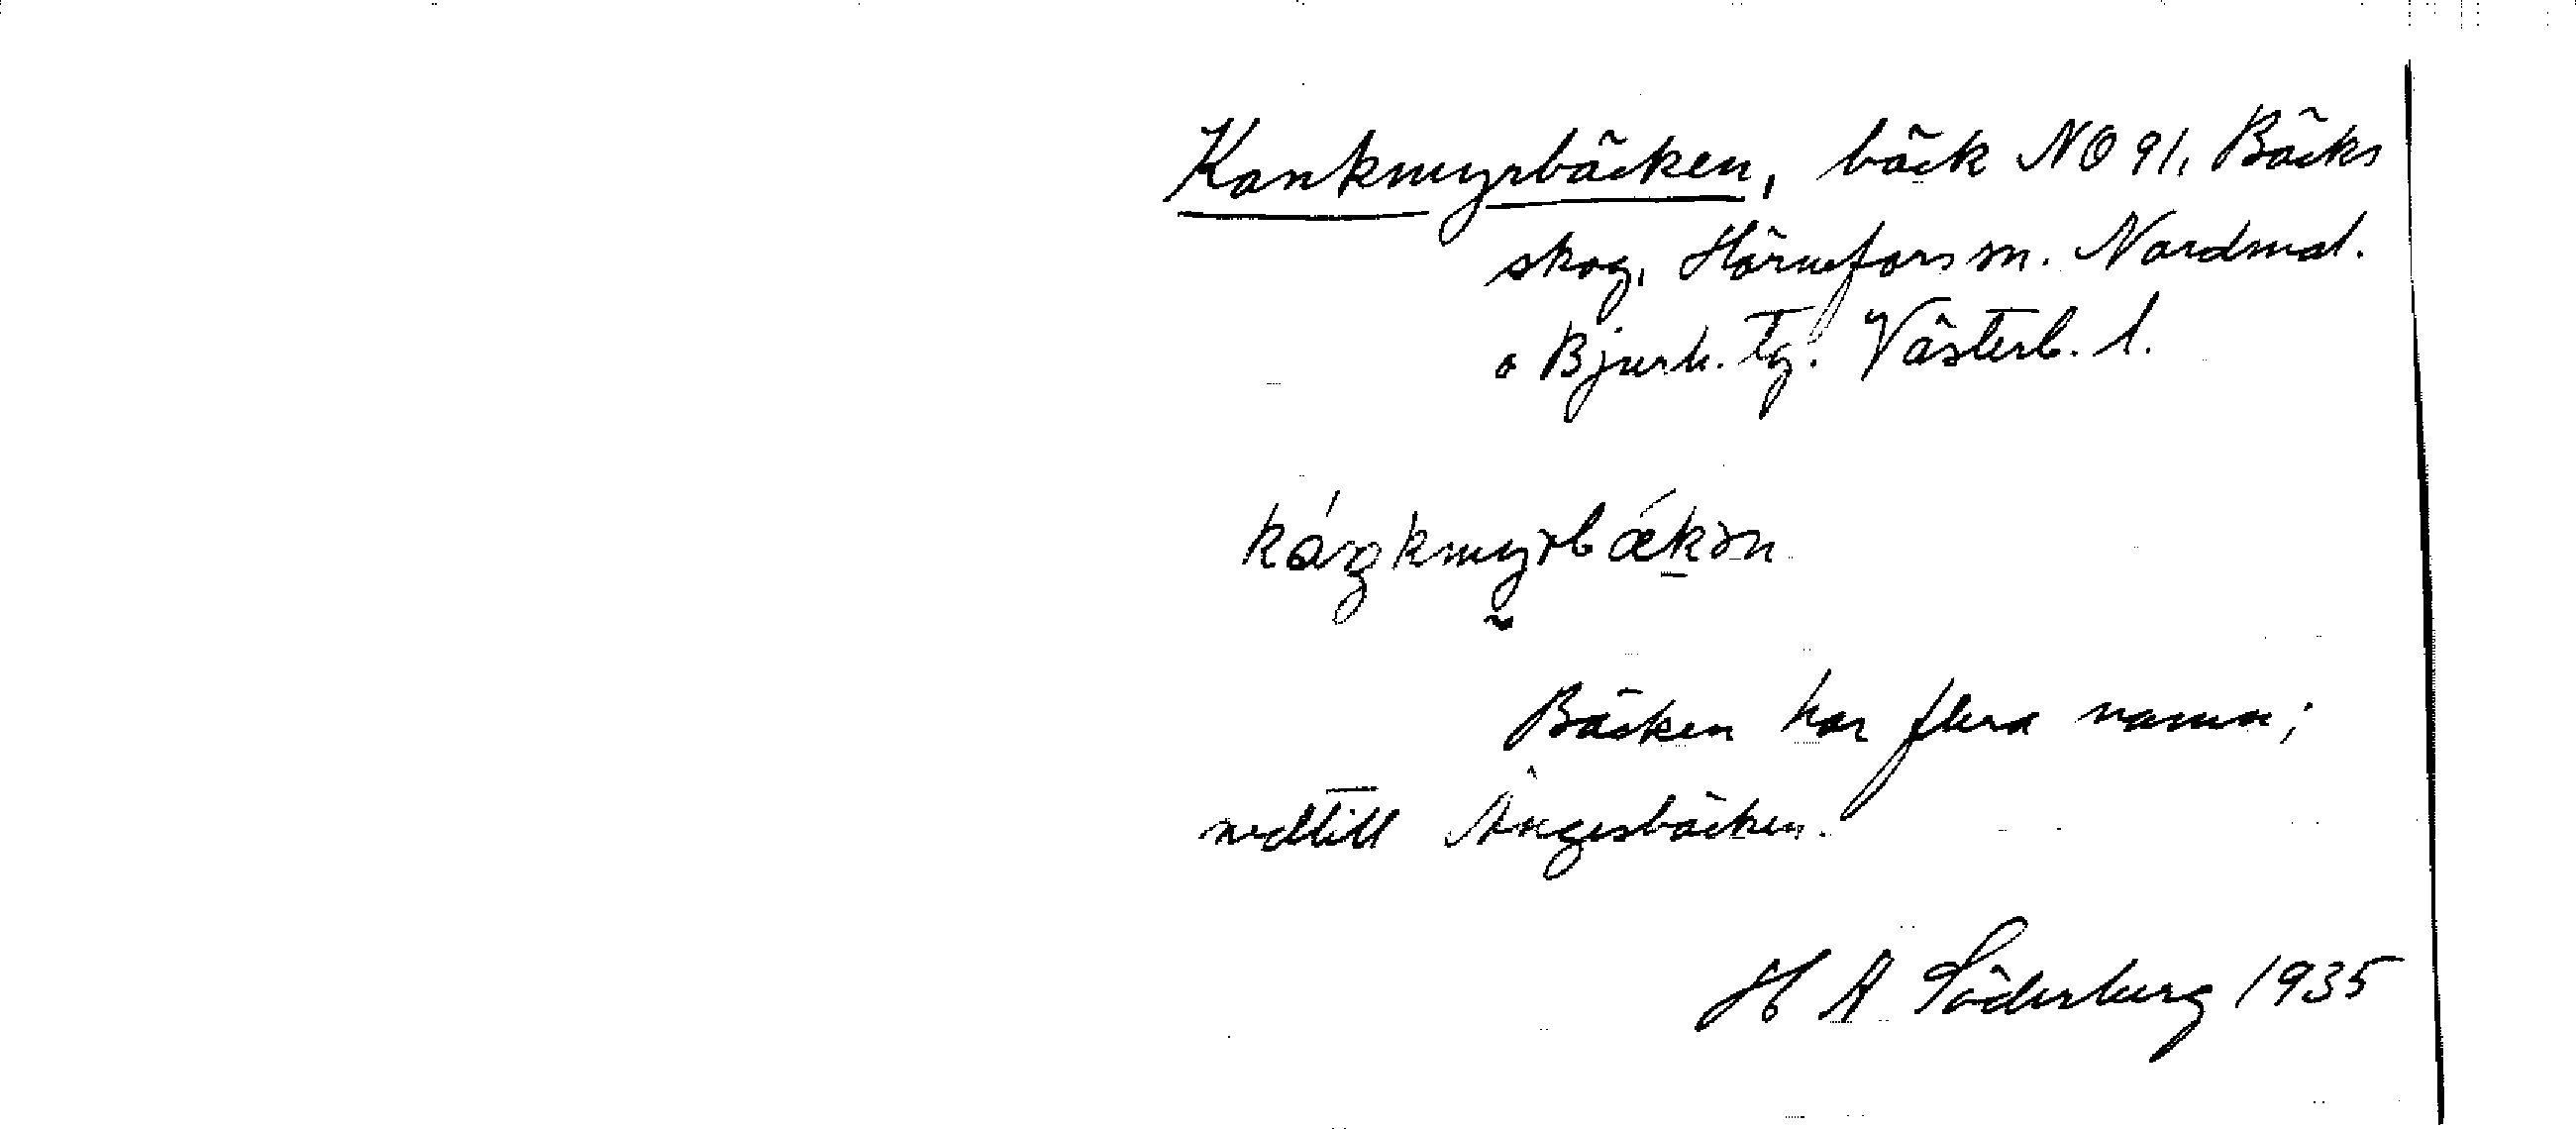 Kankmyrbäcken, bäck NO 91, Bäcks
skog, Hörnefors sn. Nordmal.
o Bjurh. tg. Västerb. l.
káŋkmyrbækən
Bäcken har flera namn;
nedtill Ängesbäcken.
H A Söderberg 1935